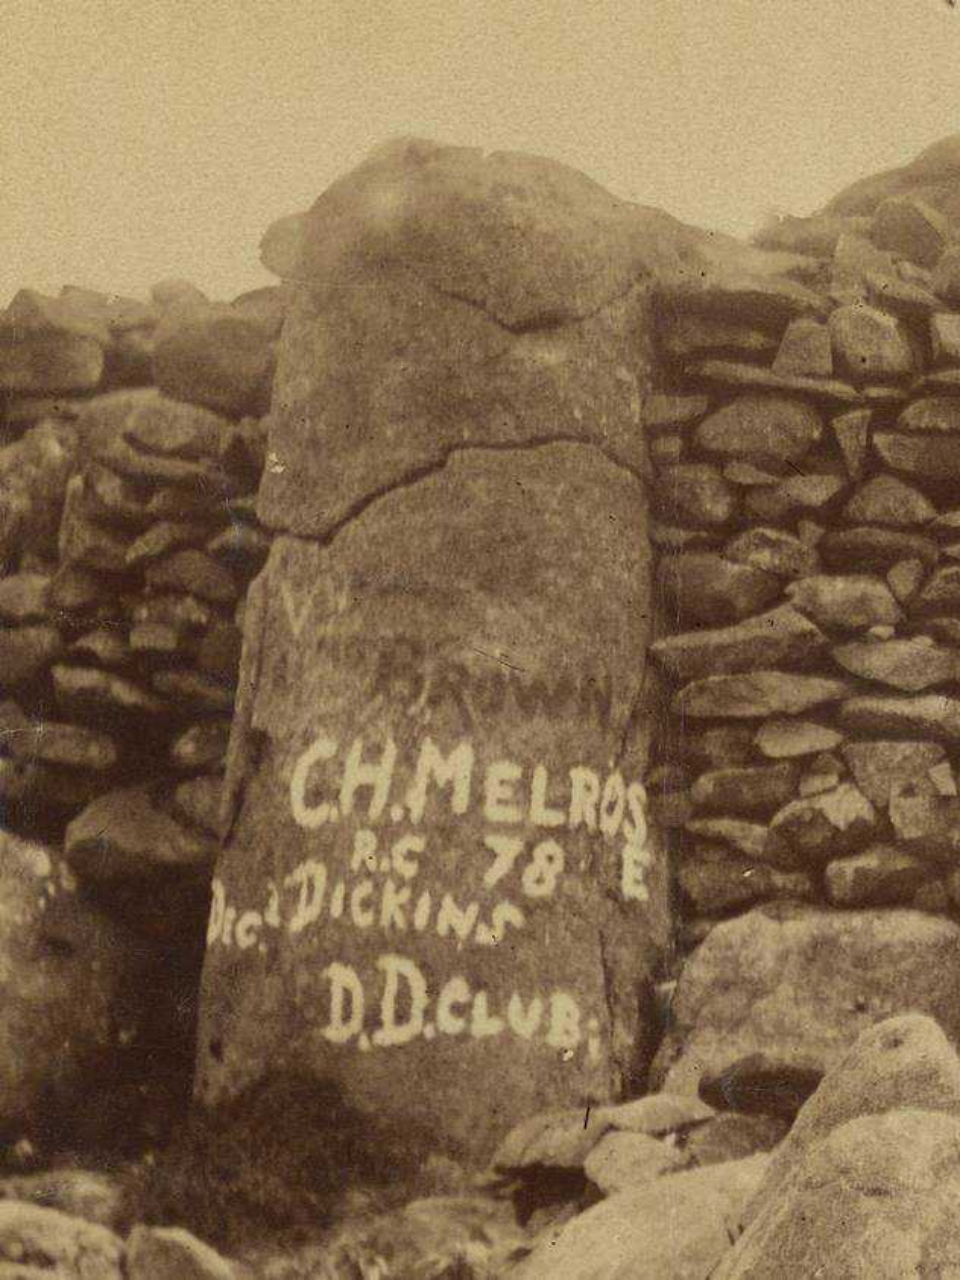 C.H. MELROSE
R.C 78
Dic. DICKINS
D.D. CLUB.